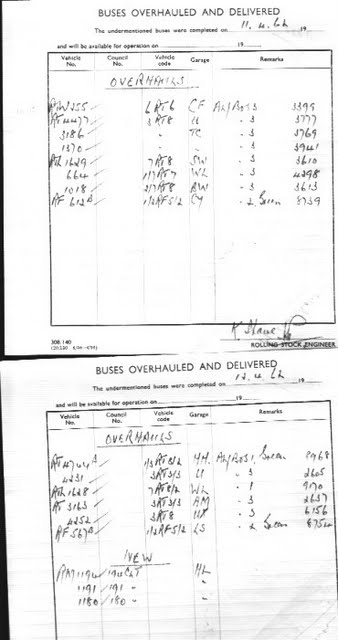 BUSES OVERHAULED AND DELIVERED
The undermentioned buses were completed on 11.4.62 19
and will be available for operation on 19
Vehicle No. Council No. Vehicle code Garage Remarks
OVERHAULS
RTW255 6RT6 CF 3399
RT4477 3RT8 3777
3186 " TC - 3 3769
1370 " " - 3 3941
RTL1629 7RT8 SW - 3 3610
664 1/7RT7 WL - 3 4298
1018 2/7RT8 BW - 3 3613
RF612 1/2RF5/2 CY - 2 Green 8739
ROLLING STOCK ENGINEER
BUSES OVERHAULED AND DELIVERED
The undermentioned buses were completed on 12.4.62 19
and will be available for operation on 19
Vehicle No. Council No. Vehicle code Garage Remarks
OVERHAULS
HH Green 8968
4231 3RT3/3 - 3 2605
RTL1628 7RT8/2 WL - 1 9170
RT3163 3RT3/3 AM - 3 2637
4252 3RT8 - 3 6156
RF567 1/2RF5/2 LS - 2 Green 8754
NEW
RM1194 HL
1191 191 - "
1180 180 - "